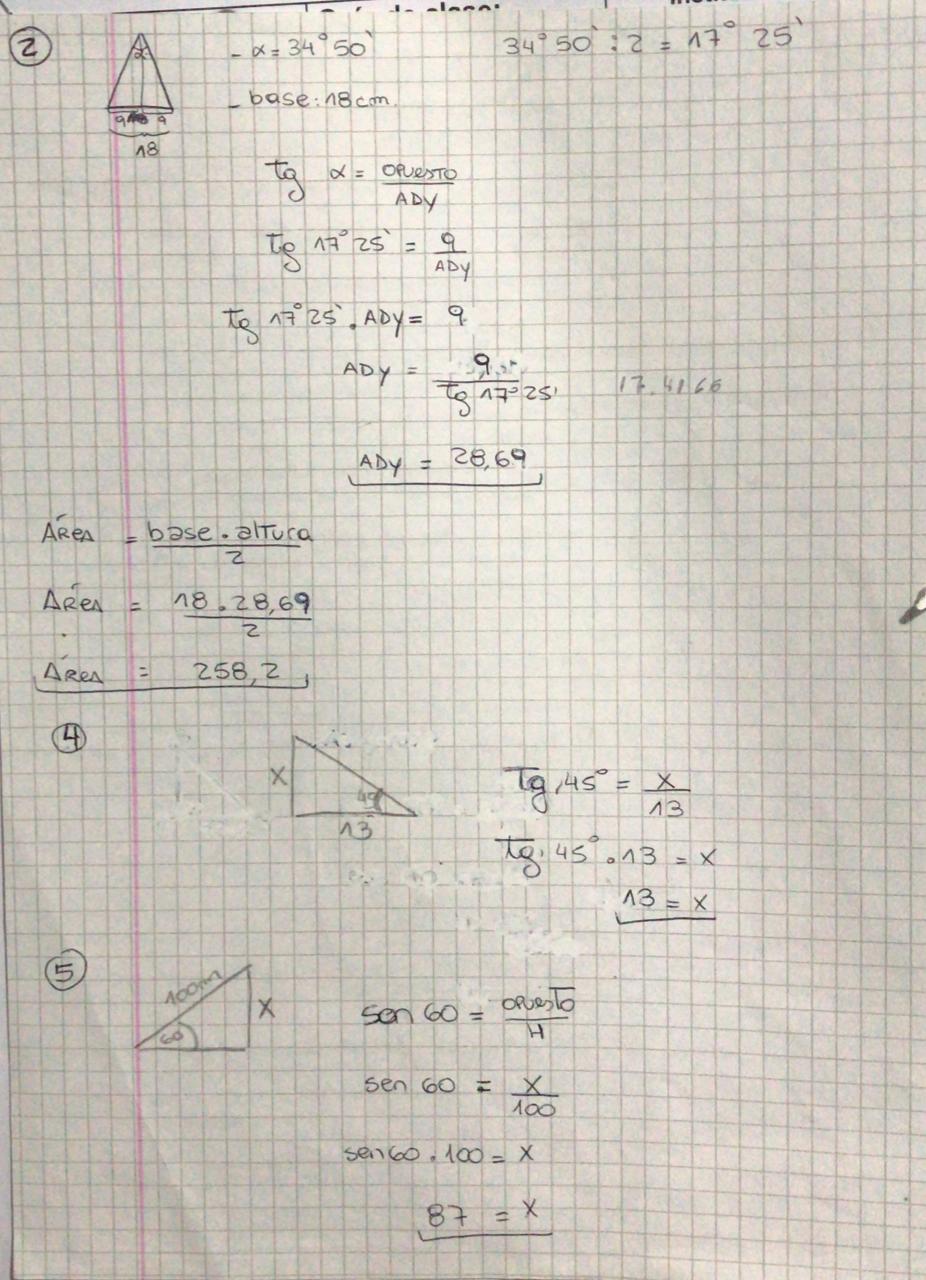 2
α
- α = 34°50`
34°50` : 2 = 17° 25`
- base: 18cm.
9 9
18
Tg α = OPUESTO
ADY
Tg 17°25` = 9
ADY
Tg 17°25` . ADY = 9
ADY = 9
Tg 17°25'
17.4166
ADY = 28,69
ÁREA = base . altura
2
ÁREA = 18 . 28,69
2
ÁREA = 258,2
4
X
45
13
Tg 45° = X
13
Tg 45° . 13 = X
13 = X
5
100m
60
X
sen 60 = OPUESTO
H
sen 60 = X
100
sen60 . 100 = X
87 = X